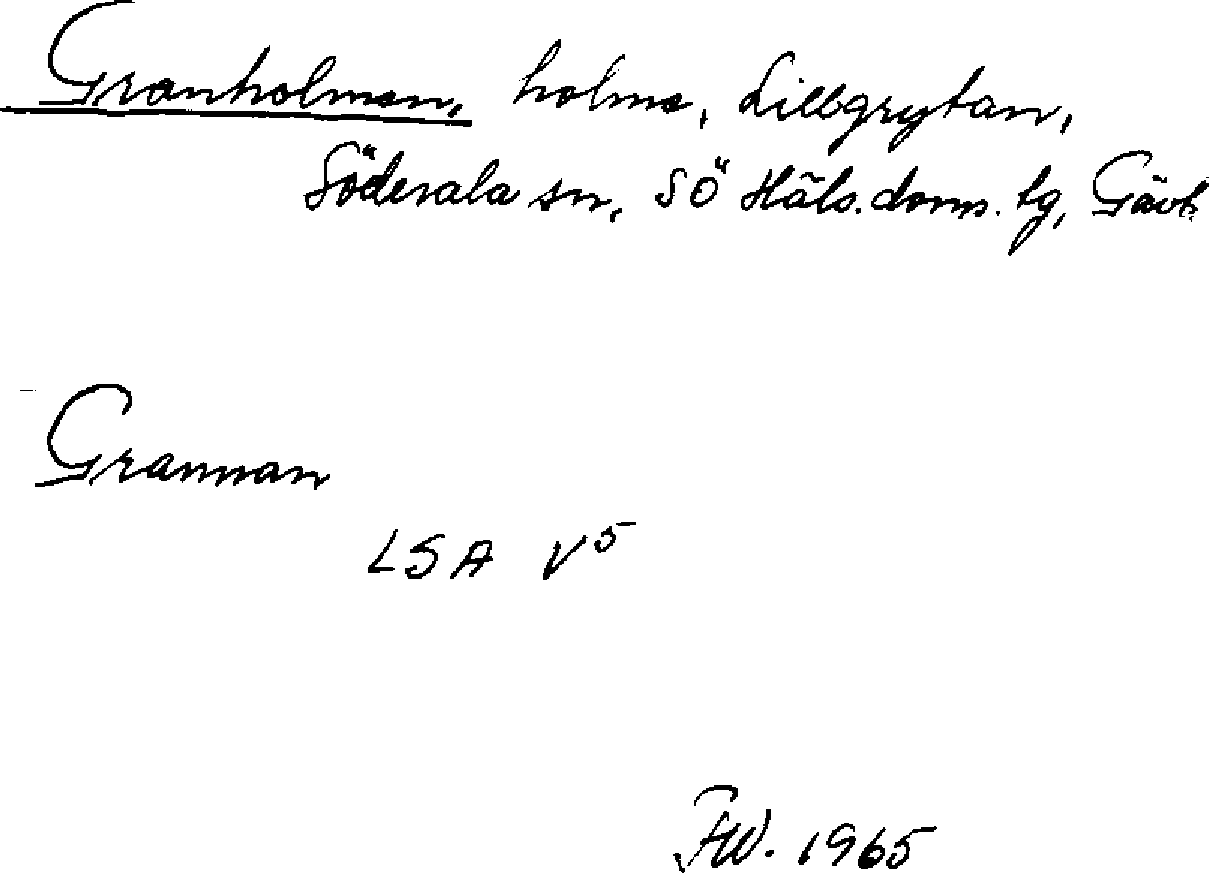 Granholmen, holme, Lillgrytan,
Söderala sn, SÖ Häls. doms. tg, Gävb
Grannan
LSA V5
FW. 1965